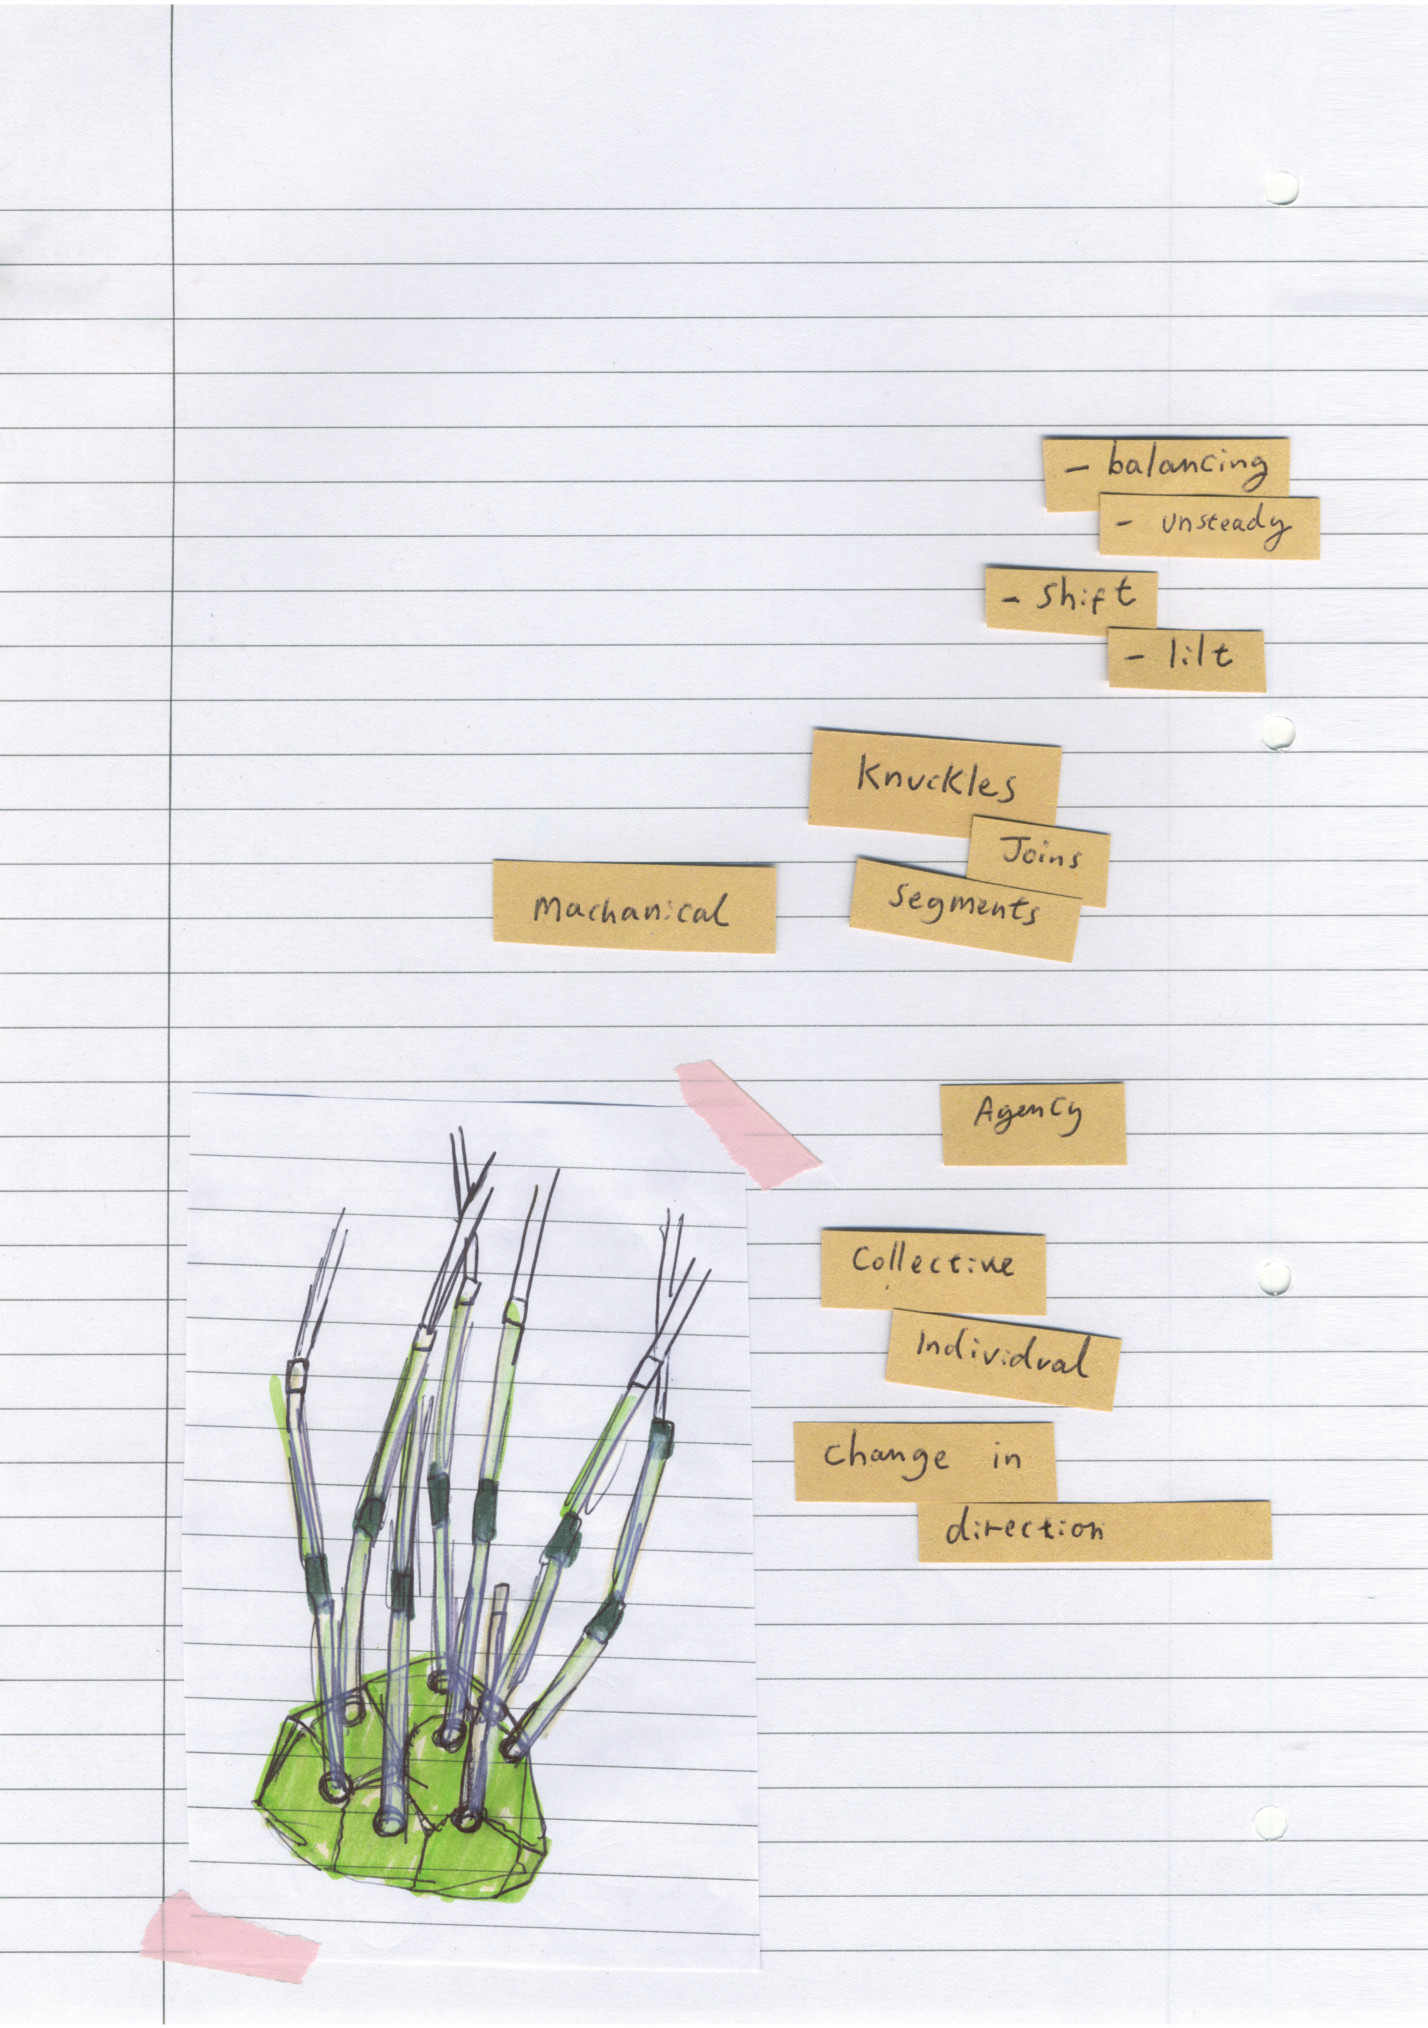 - balancing
- unsteady
- shift
- lilt
Knuckles
Joins
Machanical
segments
Agency
Collective
Individual
Change in
direction